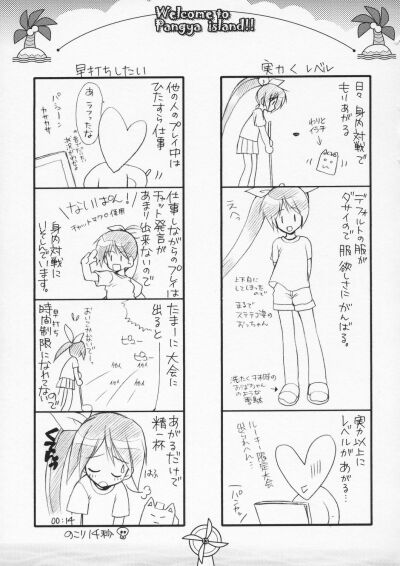 Welcome to
Pangya island!!
実力くレベル
日々 身内対戦で
もりあがる。
わりと
イラチ
デフォルトの服が
ダサイので服欲しさに
がんばる。
上下白に
してしまったので
まるで
ステテコ姿の
おっちゃん
実力以上に
レベルが
あがる…
ルーキー限定大会
早打ちしたい
他の人のプレイ中は
ひたすら仕事
あ、ラフったな
パシューン
カサカサ
仕事しながらのプレイは
チャット発言が
あまり出来ないので
身内対戦に
いそしんでいます。
ないぱん!
チャットマクロ使用
たまーに大会に
出ると
早打ち
時間制限に
なれてないので
あがるだけで
精一杯
00:14
のこり14秒